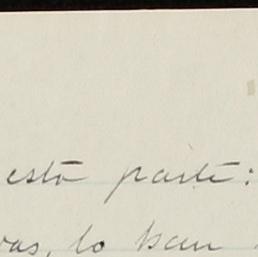 esta parte:
vas, lo han